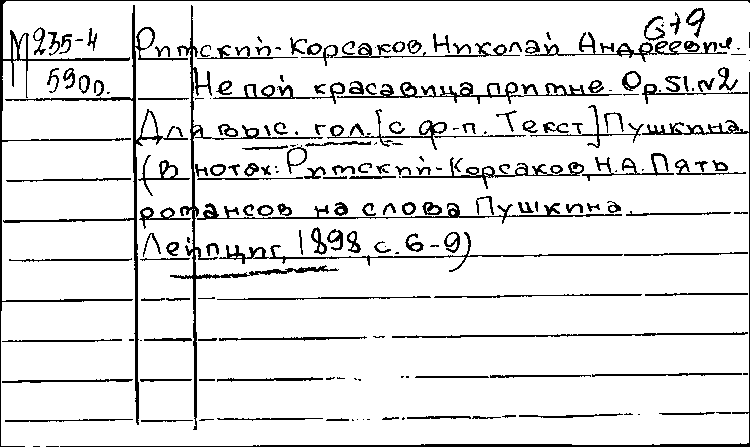 6+9
М 235-4 Римский-Корсаков, Николай Андреевич.
590п. Не пой красавица, при мне. Op.51.N2
Для выс. гол. [с ф-п. Текст] Пушкина.
(В нотах: Римский-Корсаков, Н.А. Пять
романсов на слова Пушкина.
Лейпциг, 1898, с. 6-9)